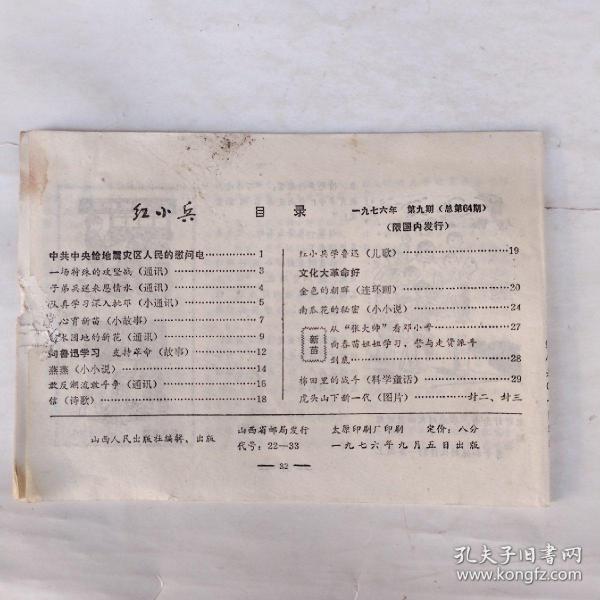 红小兵
目录
一九七六年 第九期（总第64期）
（限国内发行）
中共中央给地震灾区人民的慰问电……1
一场特殊的攻坚战（通讯）……3
子弟兵送来恩情水（通讯）……4
认真学习深入批邓（小通讯）……5
心育新苗（小故事）……7
园地的新花（通讯）……9
向鲁迅学习 支持革命（故事）……12
燕燕（小小说）……14
敢反潮流敢斗争（通讯）……16
信（诗歌）……18
红小兵学鲁迅（儿歌）……19
文化大革命好
金色的朝晖（连环画）……20
南瓜花的秘密（小小说）……24
新苗
从“张大帅”看邓小平……27
向春苗姐姐学习，誓与走资派斗
到底……28
棉田里的战斗（科学童话）……29
虎头山下新一代（图片）……封二、封三
山西人民出版社编辑、出版
山西省邮局发行
代号：22—33
太原印刷厂印刷 定价：八分
一九七六年九月五日出版
— 32 —
孔夫子旧书网
www.kongfz.com